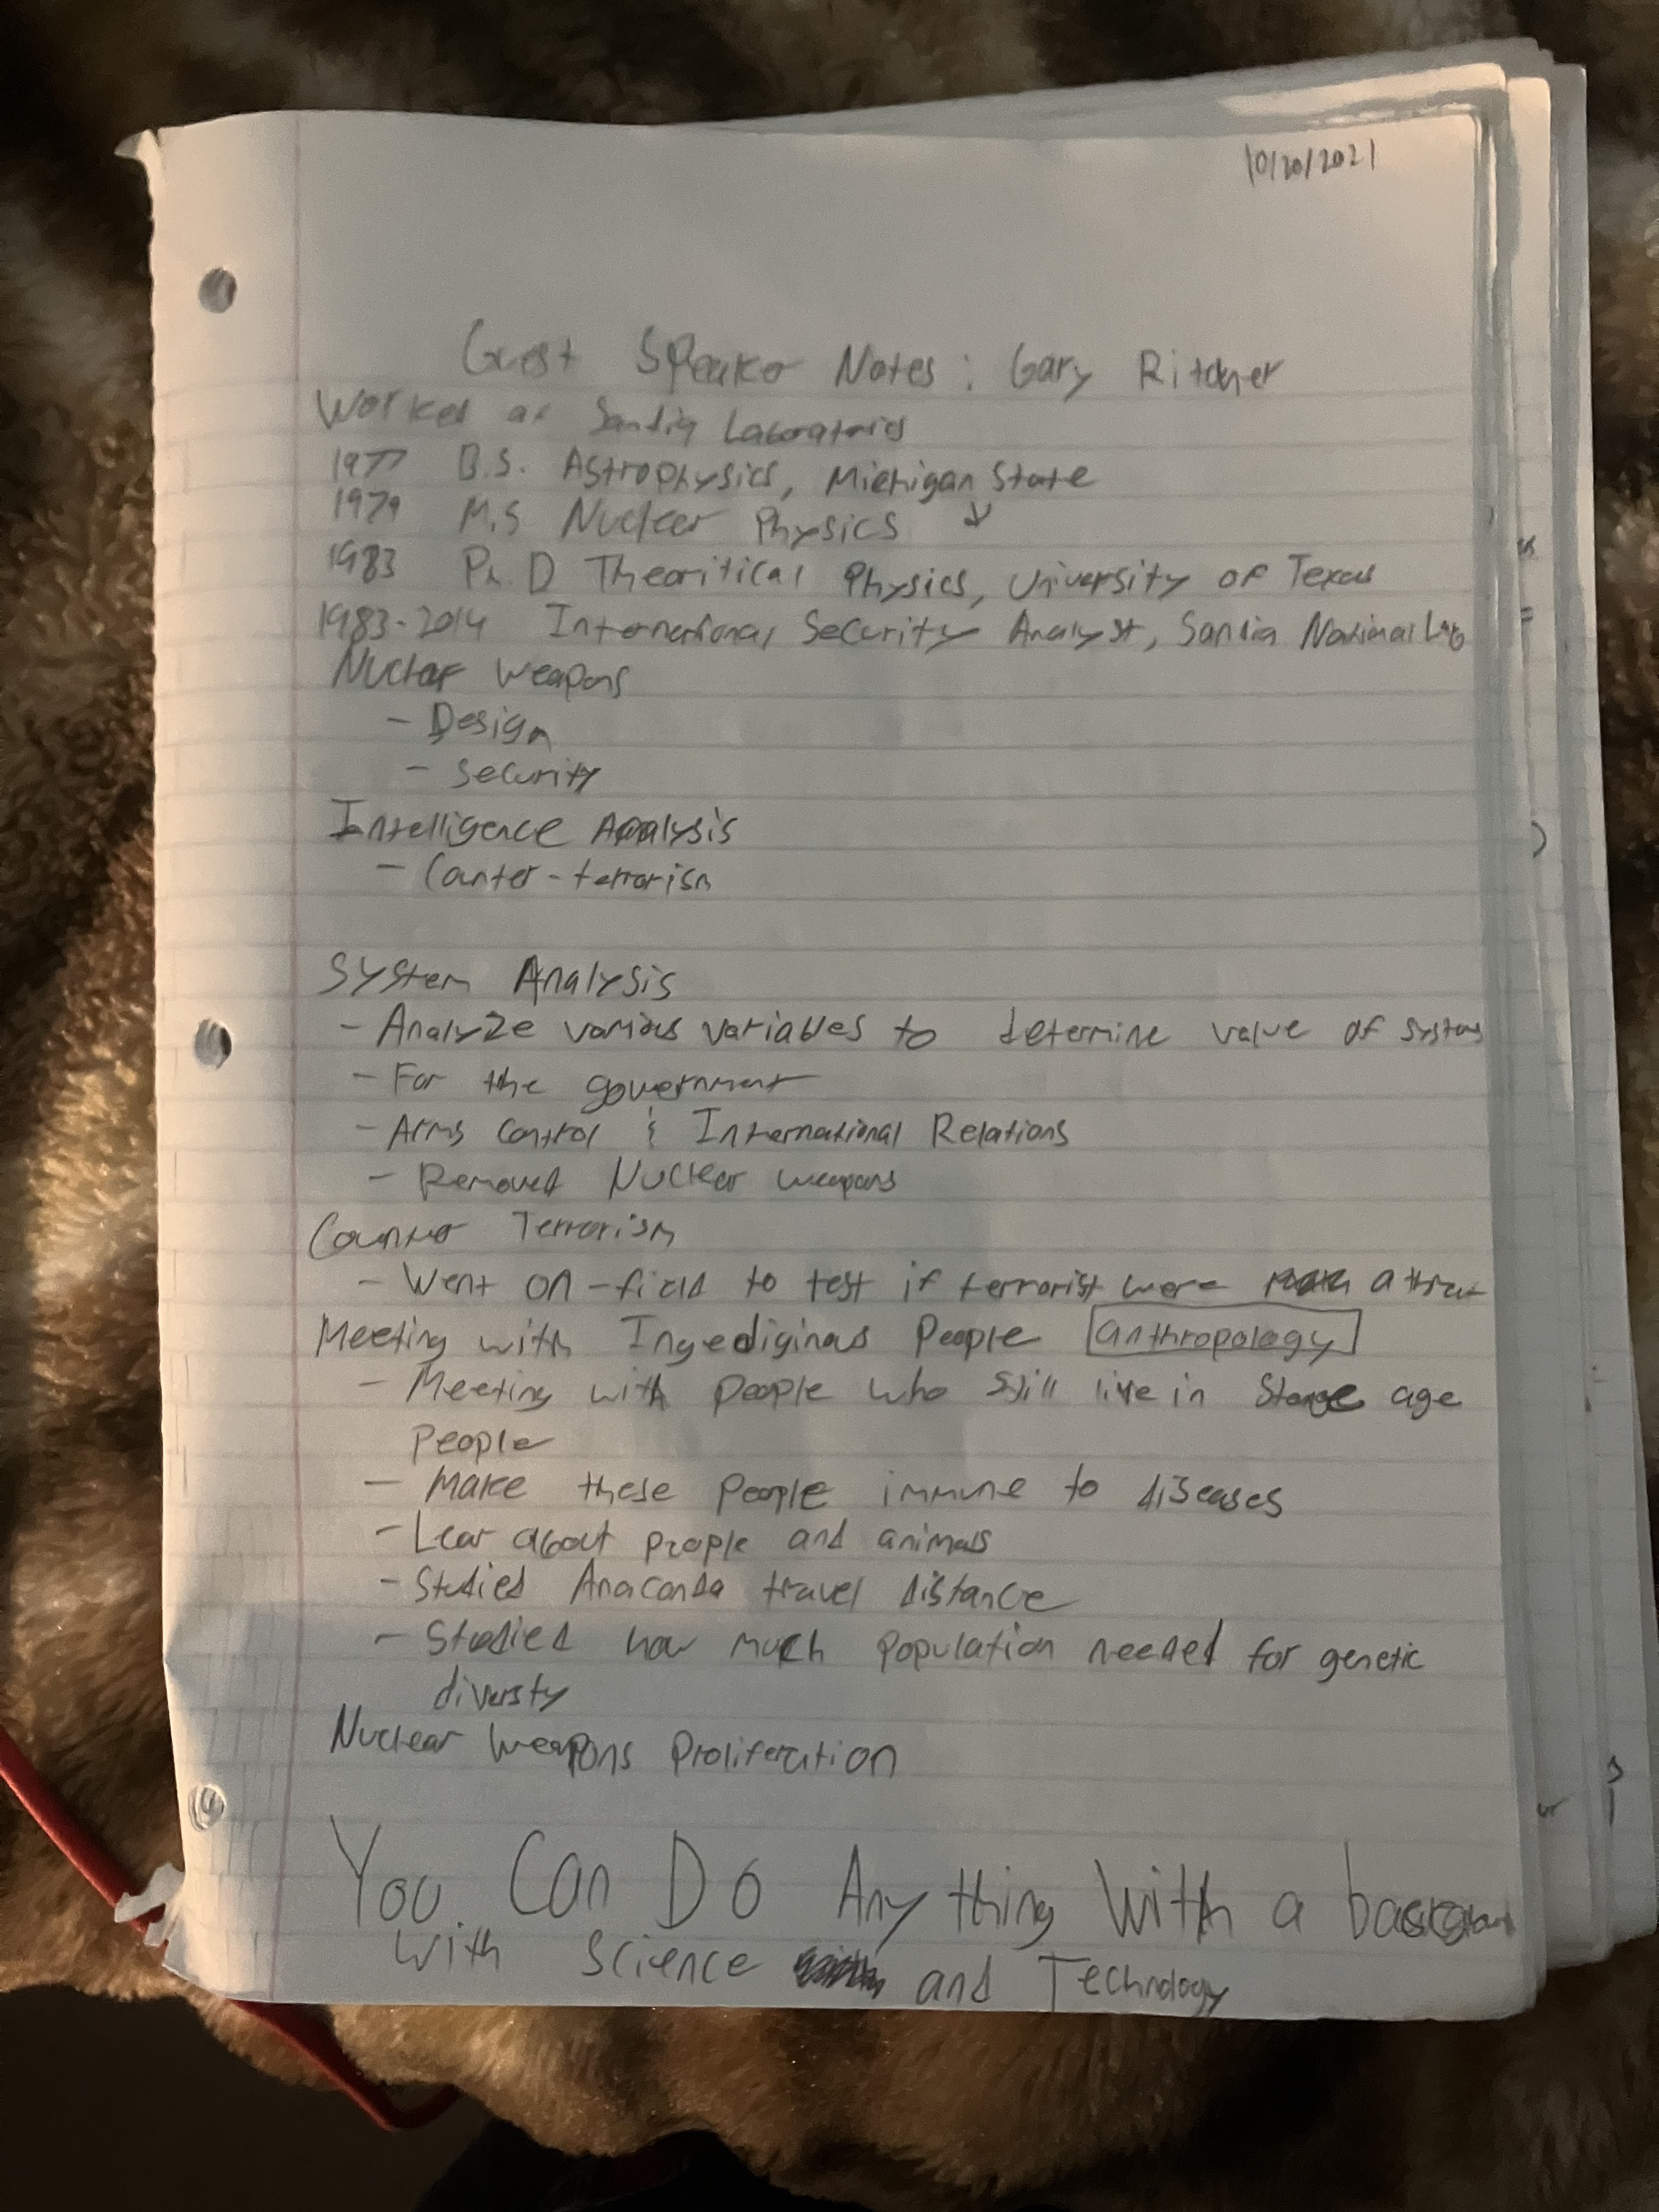 10/20/2021
Guest Speaker Notes: Gary Ritcher
Worked at Sandia Laboratories
1977 B.S. Astrophysics, Michigan State
1979 M.S Nuclear Physics ↓
1983 Ph.D Theoritical Physics, University of Texas
1983-2014 International Security Analyst, Sandia National Lab
Nuclear Weapons
- Design
- Security
Intelligence Analysis
- Counter-terrorism
System Analysis
- Analyze various variables to determine value of systems
- For the government
- Arms Control & International Relations
- Removed Nuclear weapons
Counter Terrorism
- Went on-field to test if terrorist were a threat
Meeting with Ingediginous People anthropology
- Meeting with people who still live in Stone age
people
- Make these people immune to diseases
- Lear about people and animals
- Studied Anaconda travel distance
- Studied how much population needed for genetic
diversty
Nuclear Weapons Proliferation
You Can Do Anything With a background
with science and Technology